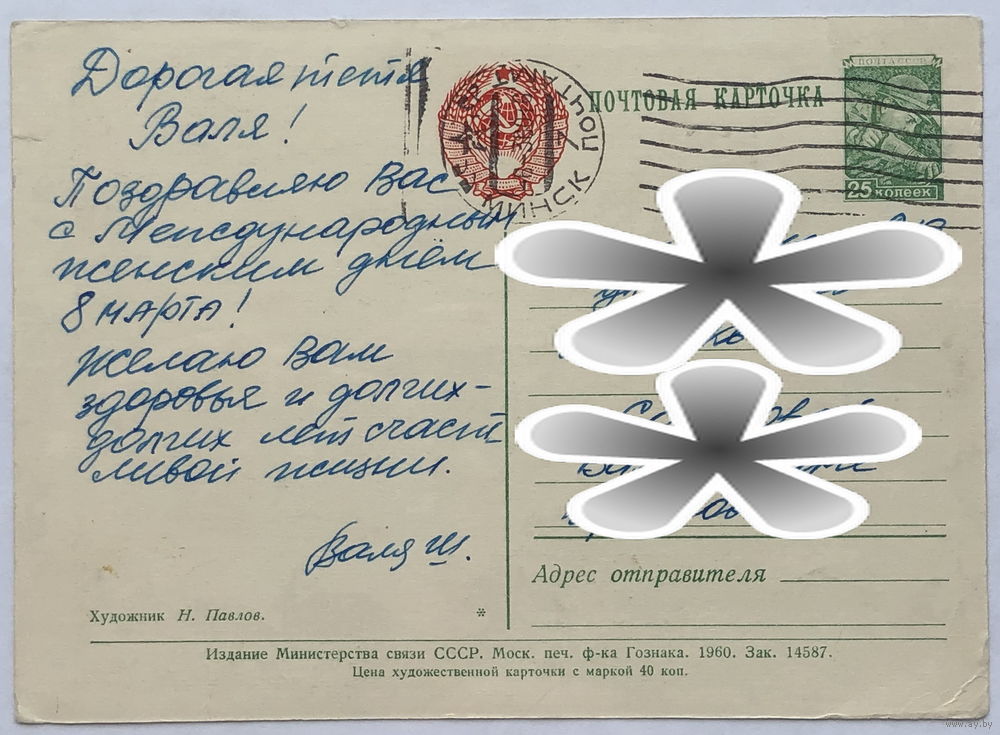 Дорогая тетя
Валя!
Поздравляю Вас
с Международным
женским днём
8 марта!
Желаю Вам
здоровья и долгих-
долгих лет счаст
ливой жизни.
Валя Ш.
Художник Н. Павлов.
*
МИНСК
ПОЧТАМТ
ПОЧТОВАЯ КАРТОЧКА
ПОЧТА СССР
25 КОПЕЕК
Адрес отправителя
Издание Министерства связи СССР. Моск. печ. ф-ка Гознака. 1960. Зак. 14587.
Цена художественной карточки с маркой 40 коп.
www.ay.by